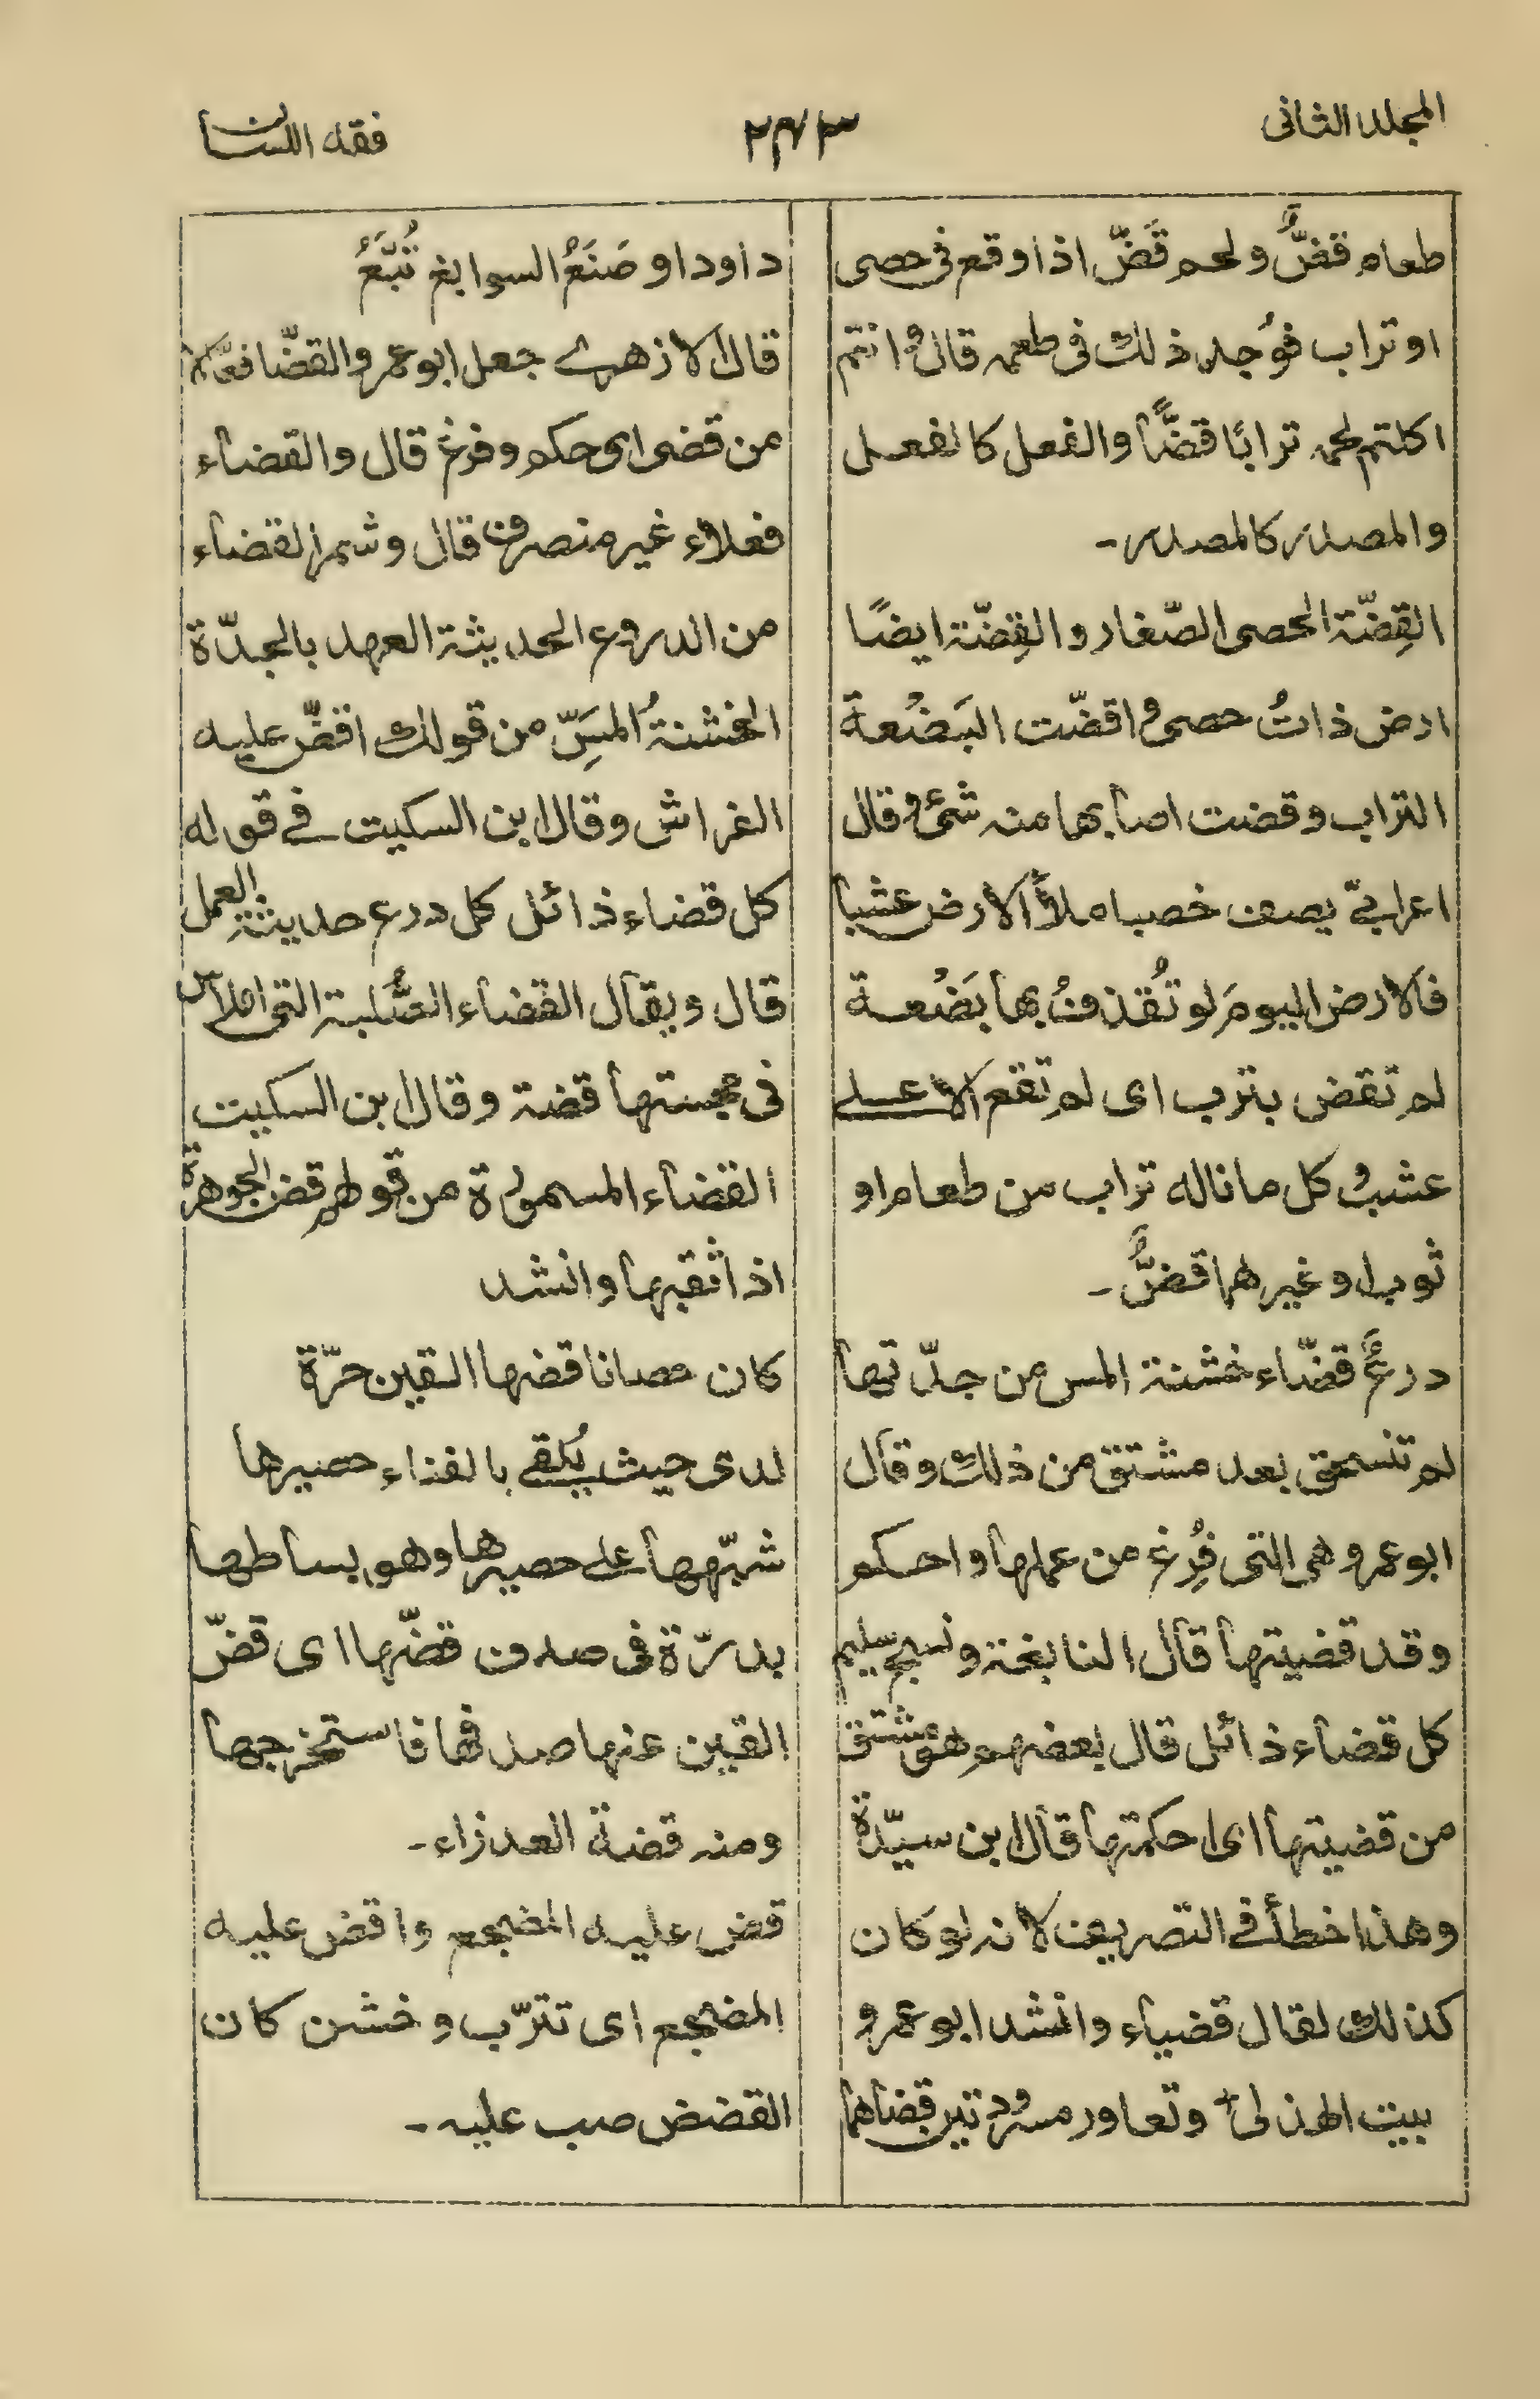 المجلد الثانی
٢٧٣
فقه اللسان
طعام قضٌّ و لحم قَضّ اذا وقع فی حصی
او تراب فوُجد ذلك فی طعمه قال و انتم
اكلتم لحمه ترابًا قضًّا والفعل كالفعل
والمصدر كالمصدر ـ
القِضّة الحصی الصّغار و القِضّة ايضًا
ارض ذاتُ حصی و اقضّت البَضْعة
التراب و قضت اصابها منه شئ و قال
اعرابیّ يصف خصبا ملأ الارض عشبا
فالارض اليومَ لو تُقذفُ بها بَضْعة
لم تقض بترب ای لم تقع الا علی
عشب و كل ما ناله تراب من طعام او
ثوب او غيرهما قضٌّ ـ
درعٌ قضّاء خشنة المس من جدّتها
لم تنسحق بعد مشتق من ذلك و قال
ابو عمرو هی التی فُرِغ من عملها و احكم
و قد قضيتها قال النابغة و نسج سليم
كل قضاء ذائل قال بعضهم هو مشتق
من قضيتها ای احكمتها قال ابن سيّدة
و هذا خطأ فی التصريف لانه لو كان
كذلك لقال قضياء و انشد ابو عمرو
بيت الهذلی و تعاور مسرودتين قضاهما
داود او صَنَعُ السوابغ تُبَّعُ
قال الازهری جعل ابو عمرو القضّا فعّالا
من قضی ای حكم و فرغ قال و القضاء
فعلاء غير منصرف قال و شمر القضاء
من الدروع الحديثة العهد بالجدّة
الخشنةُ المسِّ من قولك اقضّ عليه
الفراش و قال ابن السكيت فی قوله
كل قضاء ذائل كل درع حديثة العمل
قال و يقال القضاء الصُّلبة التی املاس
فی مجستها قضة و قال ابن السكيت
القضاء المسمورة من قولهم قض الجوهرة
اذا ثقبها و انشد
كان حصانا قضها القين حرّة
لدی حيث يُلقی بالفناء حصيرها
شبّهها علی حصيرها و هو بساطها
بدرّة فی صدف قضّها ای قضّ
القين عنها صدفها فاستخرجها
و منه قضة العذراء ـ
قض عليه المضجع و اقض عليه
المضجع ای تترّب و خشن كان
القضض صب عليه ـ